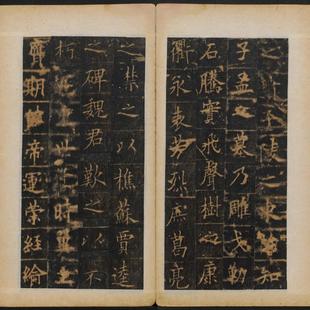 之子陵之知
子孟之墓乃雕戈勒
石騰實飛聲樹之康
衢永表芳烈庶葛亮
之禁之以樵蘇賈逵
之碑魏君歎之以不
朽世時
期帝運榮經綸